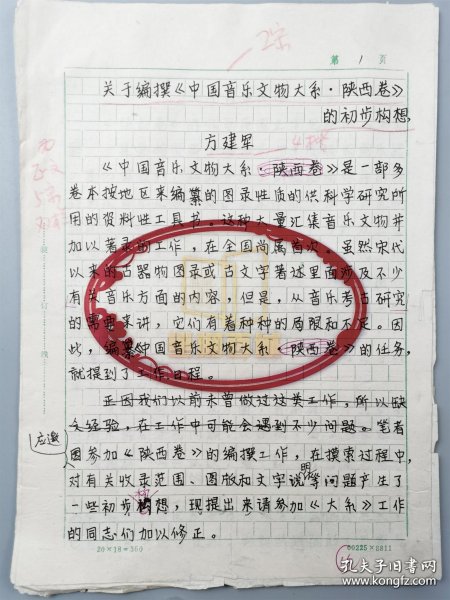 第 1 页
关于编撰《中国音乐文物大系·陕西卷》
的初步构想
方建军
《中国音乐文物大系·陕西卷》是一部多
卷本按地区来编纂的图录性质的供科学研究所
用的资料性工具书。这种大量汇集音乐文物并
加以著录的工作，在全国尚属首次。虽然宋代
以来的古器物图录或古文字著述里面涉及不少
有关音乐方面的内容，但是，从音乐考古研究
的需要来讲，它们有着种种的局限和不足。因
此，编纂《中国音乐文物大系·陕西卷》的任务，
就提到了工作日程。
正因我们以前未曾做过这类工作，所以缺
乏经验，在工作中可能会遇到不少问题。笔者
应邀
因参加《陕西卷》的编撰工作，在摸索过程中，
对有关收录范围、图版和文字说明等问题产生了
一些初步构想，现提出来请参加《大系》工作
的同志们加以修正。
20×18=360
00225×8811
孔夫子旧书网